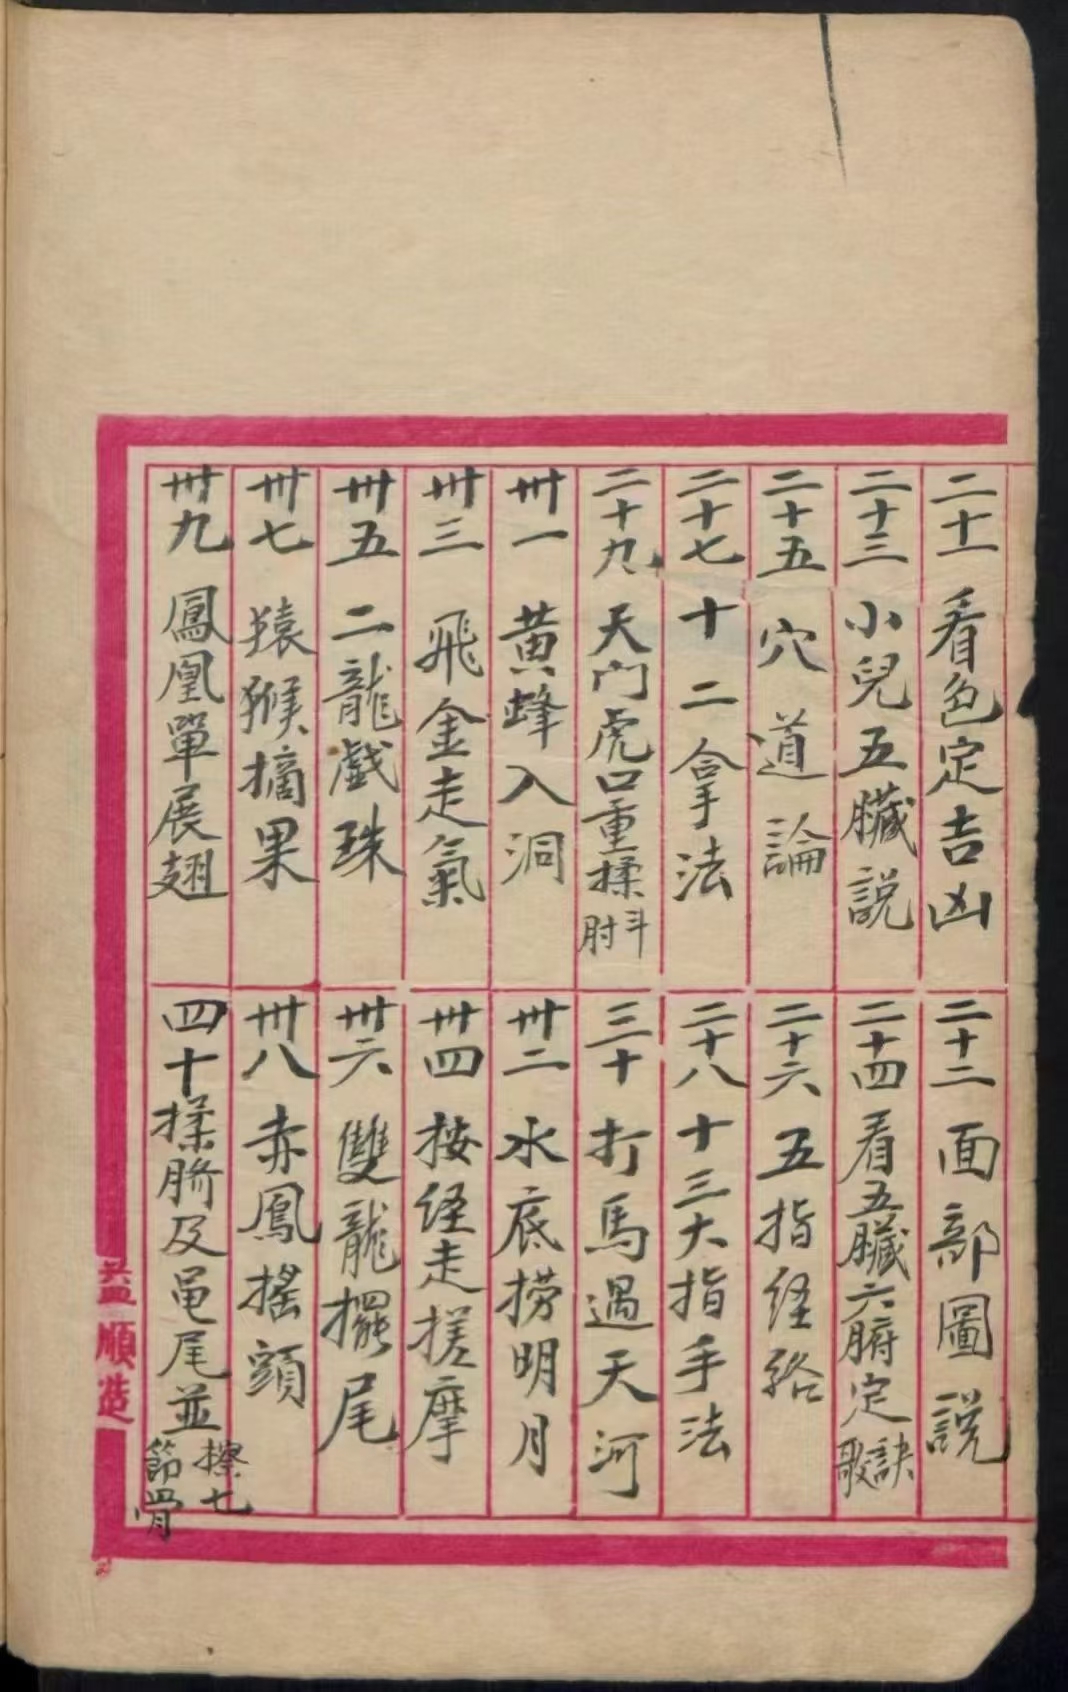 二十一 看色定吉凶
二十二 面部圖說
二十三 小兒五臟説
二十四 看五臟六腑定訣歌
二十五 穴道論
二十六 五指経絡
二十七 十二拿法
二十八 十三大指手法
二十九 天门虎口重揉斗肘
三十 打馬過天河
卅一 黄蜂入洞
卅二 水底撈明月
卅三 飛金走氣
卅四 按経走搓摩
卅五 二龍戲珠
卅六 雙龍擺尾
卅七 猿猴摘果
卅八 赤鳳搖頭
卅九 鳳凰單展翅
四十 揉臍及黾尾並擦七節骨
益順造